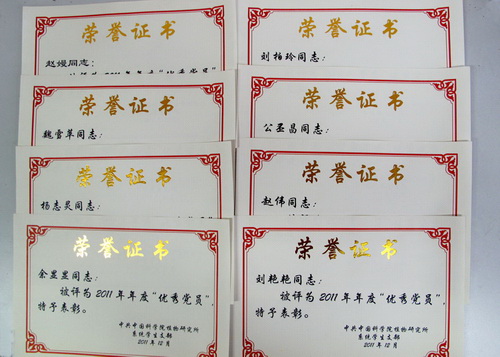 荣誉证书
赵嫚同志：
荣誉证书
刘柏玲同志：
荣誉证书
魏雪苹同志：
荣誉证书
公丕昌同志：
荣誉证书
杨志昊同志：
荣誉证书
赵伟同志：
荣誉证书
余昱昱同志：
被评为2011年年度“优秀党员”，
特予表彰。
中共中国科学院植物研究所
系统学生支部
2011年12月
荣誉证书
刘艳艳同志：
被评为2011年年度“优秀党员”，
特予表彰。
中共中国科学院植物研究所
系统学生支部
2011年12月